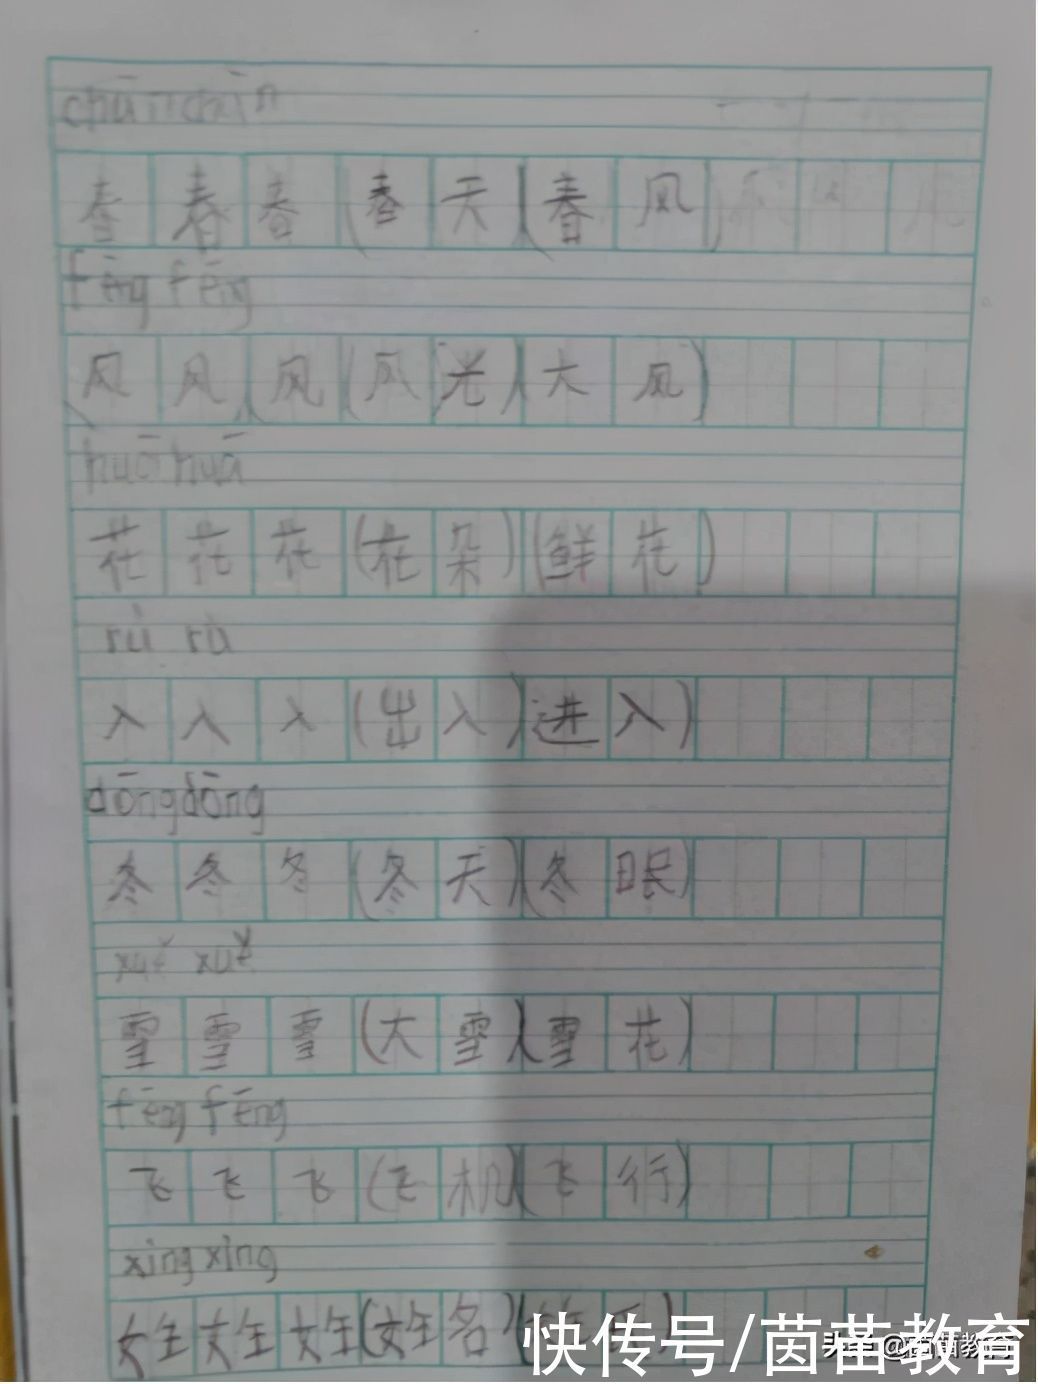 chūn chūn
春春春(春天)(春风)
fēng fēng
风风风(风光)(大风)
huā huā
花花花(花朵)(鲜花)
rù rù
入入入(出入)进入)
dōng dōng
冬冬冬(冬天)(冬眠)
xuě xuě
雪雪雪(大雪)(雪花)
fēng fēng
飞飞飞(飞机)(飞行)
xìng xìng
姓姓姓(姓名)(姓氏)
快传号/茵苗教育
头条 @茵苗教育